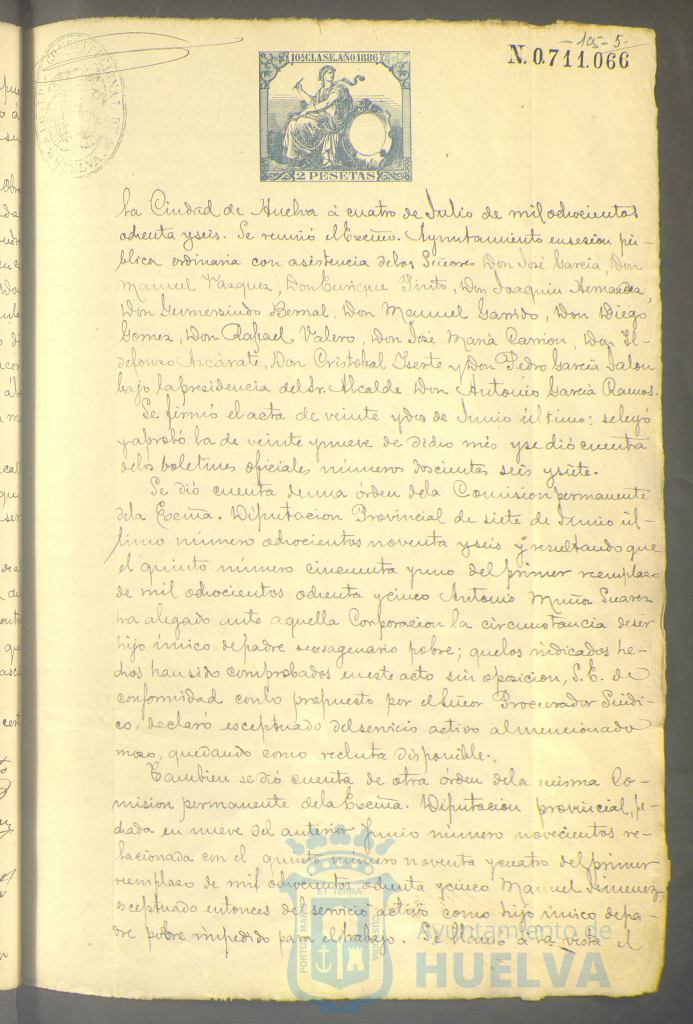 105-5-
10ª CLASE. AÑO 1886
N. 0.711.066
2 PESETAS
la Ciudad de Huelva á cuatro de Julio de mil ochocientos
ochenta y seis. Se reunió el Excmo. Ayuntamiento en sesion pú-
blica ordinaria con asistencia de los Señores Don José García, Don
Manuel Vázquez, Don Enrique Pinto, Don Joaquin Hernandez,
Don Gumersindo Bernal, Don Manuel Garrido, Don Diego
Gomez, Don Rafael Valero, Don José Maria Carrion, Don Il-
defonso Azcárate, Don Cristobal Iserte y Don Pedro García Jalon
bajo la presidencia del Sr. Alcalde Don Antonio García Ramos.
Se firmó el acta de veinte y dos de Junio último: se leyó
y aprobó la de veinte y nueve de dicho mes y se dió cuenta
de los boletines oficiales números doscientos seis y siete.
Se dió cuenta de una órden de la Comision permanente
de la Excma. Diputacion Provincial de siete de Junio úl-
timo número ochocientos noventa y seis y resultando que
el quinto número cincuenta y uno del primer reemplazo
de mil ochocientos ochenta y cinco Antonio Muñoz Suarez
ha alegado ante aquella Corporacion la circunstancia de ser
hijo único de padre sexagenario pobre; que los indicados he-
chos han sido comprobados en este acto sin oposicion, S. E. de
conformidad con lo propuesto por el Señor Procurador Síndi-
co, declaró esceptuado del servicio activo al mencionado
mozo, quedando como recluta disponible.
Tambien se dió cuenta de otra órden de la misma Co-
mision permanente de la Excma. Diputacion provincial, fe-
chada en nueve del anterior Junio número novecientos re-
lacionada con el quinto número noventa y cuatro del primer
reemplazo de mil ochocientos ochenta y cinco Manuel Jimenez
esceptuado entonces del servicio activo como hijo único de pa-
dre pobre impedido para el trabajo. Se llamó á la vista el
ET TERRA
PORTUS MARIS
CUSTODIA
Ayuntamiento de
HUELVA